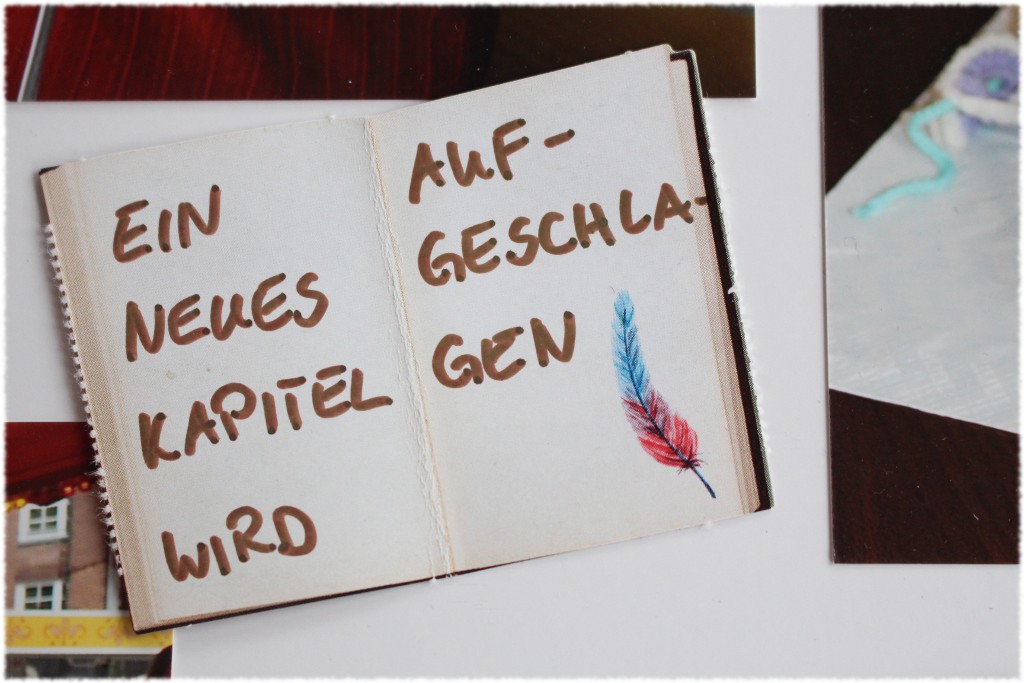 EIN
NEUES
KAPITEL
WIRD
AUF-
GESCHLA-
GEN